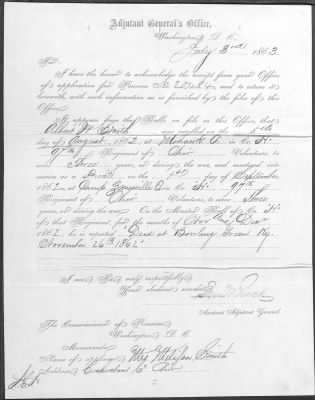 Adjutant General's Office,
Washington, D. C.
July 3rd 1863
Sir,
I have the honor to acknowledge the receipt from your Office
of application for Pension No. and to return it
herewith, with such information as is furnished by the files of this
Office.
It appears from the Rolls on file in this Office, that
Smith was enrolled on the
day of August 1862, at O. in Co. H.
97th Regiment of Ohio Volunteers, to
serve Three years, or during the war, and mustered into
service as a Private on the 1st day of September
1862, at Camp Zanesville O. in Co. H. 97th
Regiment of Ohio Volunteers, to serve Three
years, or during the war. On the Muster Roll of Co. H.
of that Regiment, for the months of Nov and Dec
1862, he is reported "Died at Bowling Green Ky.
November 26th 1862"
I am, Sir, very respectfully,
Your obedient servant,
Assistant Adjutant General.
The Commissioner of Pensions,
Washington, D. C.
Memoranda:
Name of applicant, Mrs Smith
Address, Co. Ohio